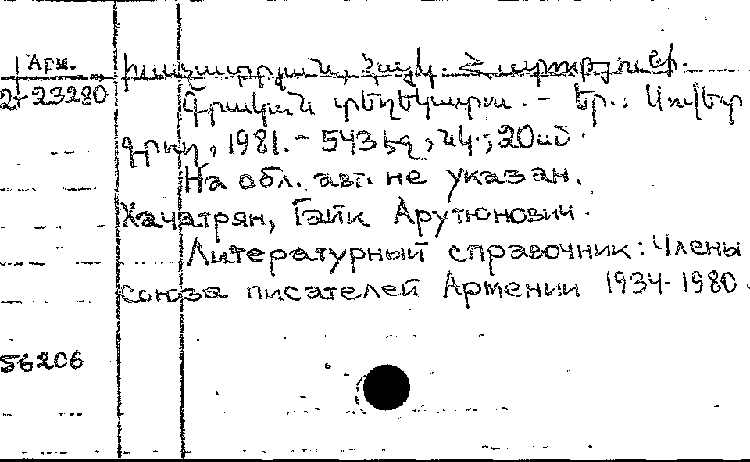 Арм. Խաչատրյան, Հայկ Հարություն
2-23280 Գրական տեղեկատու. - Եր.: Սովետ
գրող, 1981. - 543 էջ, նկ.; 20սմ.
На обл. авт. не указан.
Хачатрян, Гайк Арутюнович.
Литературный справочник: Члены
союза писателей Армении 1934-1980.
56206